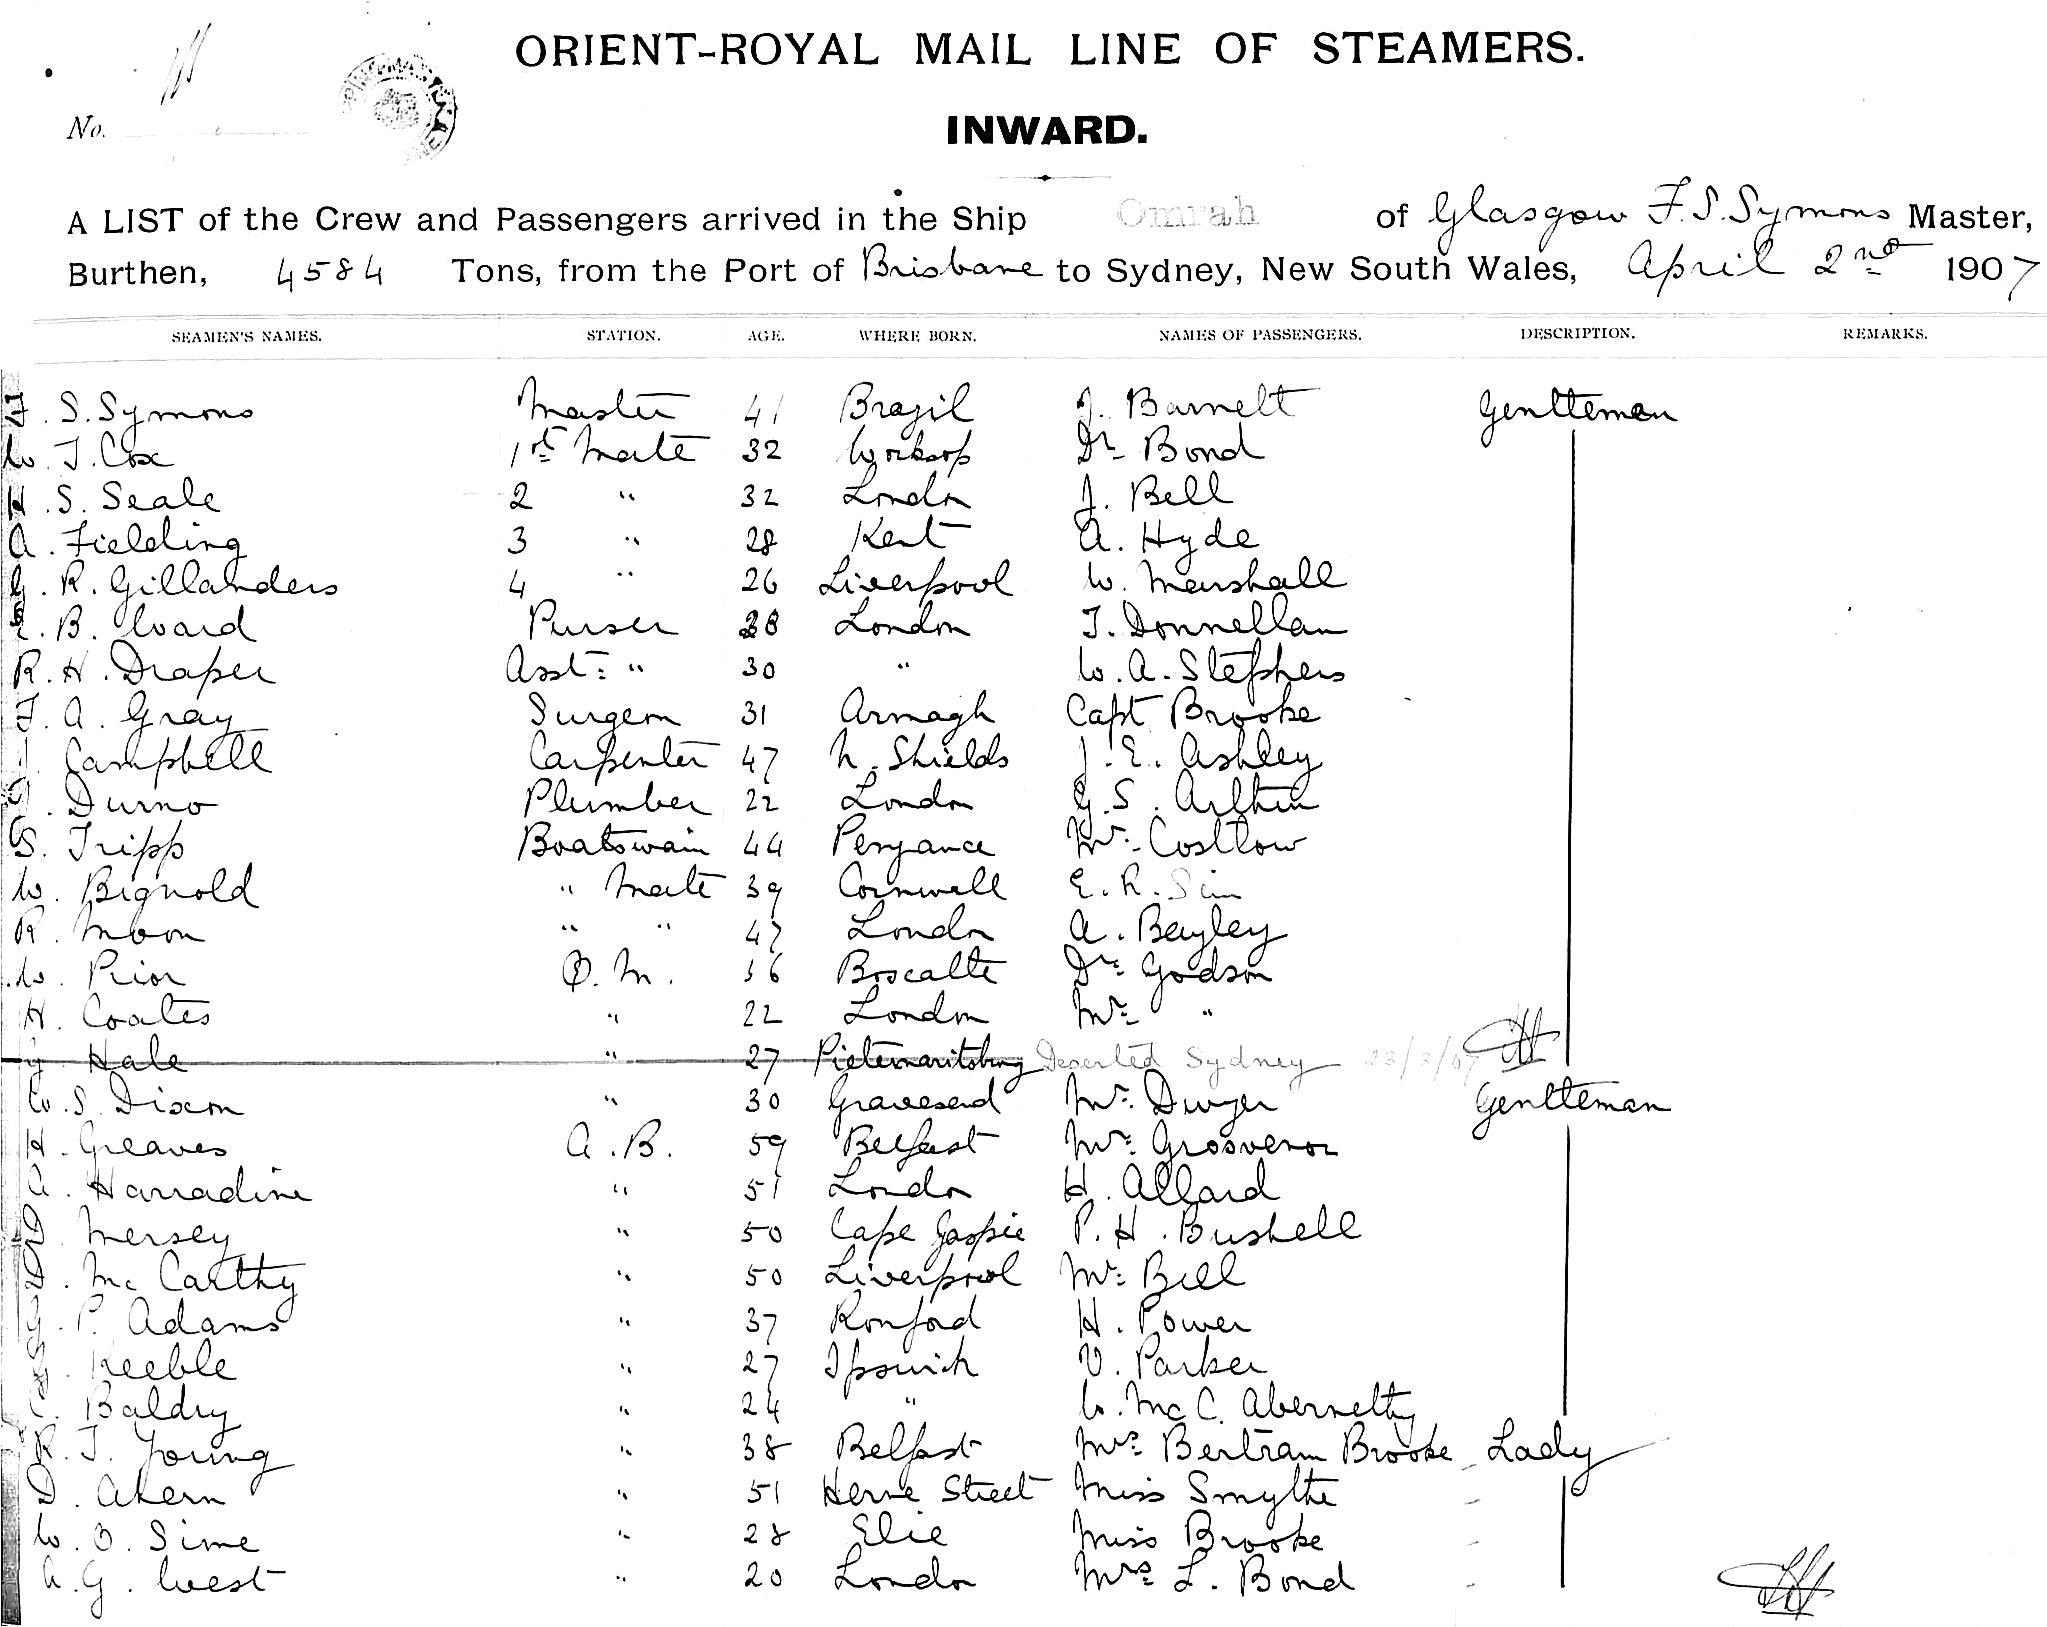 ORIENT-ROYAL MAIL LINE OF STEAMERS.
No.
INWARD.
A LIST of the Crew and Passengers arrived in the Ship Omrah of Glasgow F. S. Symons Master,
Burthen, 4584 Tons, from the Port of Brisbane to Sydney, New South Wales, April 2nd 1907
SEAMEN'S NAMES. STATION. AGE. WHERE BORN. NAMES OF PASSENGERS. DESCRIPTION. REMARKS.
F. S. Symons Master 41 Brazil J. Barnett Gentleman
W. J. Cox 1st Mate 32 Worksop Dr Bond
H. S. Seale 2 " 32 London J. Bell
A. Fielding 3 " 28 Kent A. Hyde
G. R. Gillanders 4 " 26 Liverpool W. Marshall
B. Ward Purser London T. Donnellan
R. H. Draper Asst: " 30 " W. A. Stephens
F. A. Gray Surgeon 31 Armagh Capt Brooke
Campbell Carpenter 47 N. Shields J. E. Ashley
Durno Plumber 22 London G. S.
S. Tripp Boatswain 44 Penzance Mr. Costlow
W. Bignold " Mate 39 Cornwall E. R. Sim
R. Moon " " 47 London A. Bayley
W. Prior Q. M. 36 Boscatte Dr. Godson
H. Coates " 22 London Mr. "
G. Hale " 27 Pietermaritzburg Deserted Sydney 23/3/07
W. S. Dixon " 30 Gravesend Mr. Dwyer Gentleman
H. Greaves A. B. 59 Belfast Mr. Grosvenor
A. Harradine " 51 London H. Allard
D. Mersey " 50 Cape Gaspie P. H. Bushell
D. McCarthy " 50 Liverpool Mr. Bell
G. P. Adams " 37 Romford H. Power
Keeble " 27 Ipswich V. Parker
C. Baldry " 24 " W. McC. Abernethy
R. J. Young " 38 Belfast Mrs Bertram Brooke Lady
D. Ahern " 51 Herne Street Miss Smythe
W. O. Sime " 28 Elie Miss Brooke
A. G. West " 20 London Mrs. L. Bond